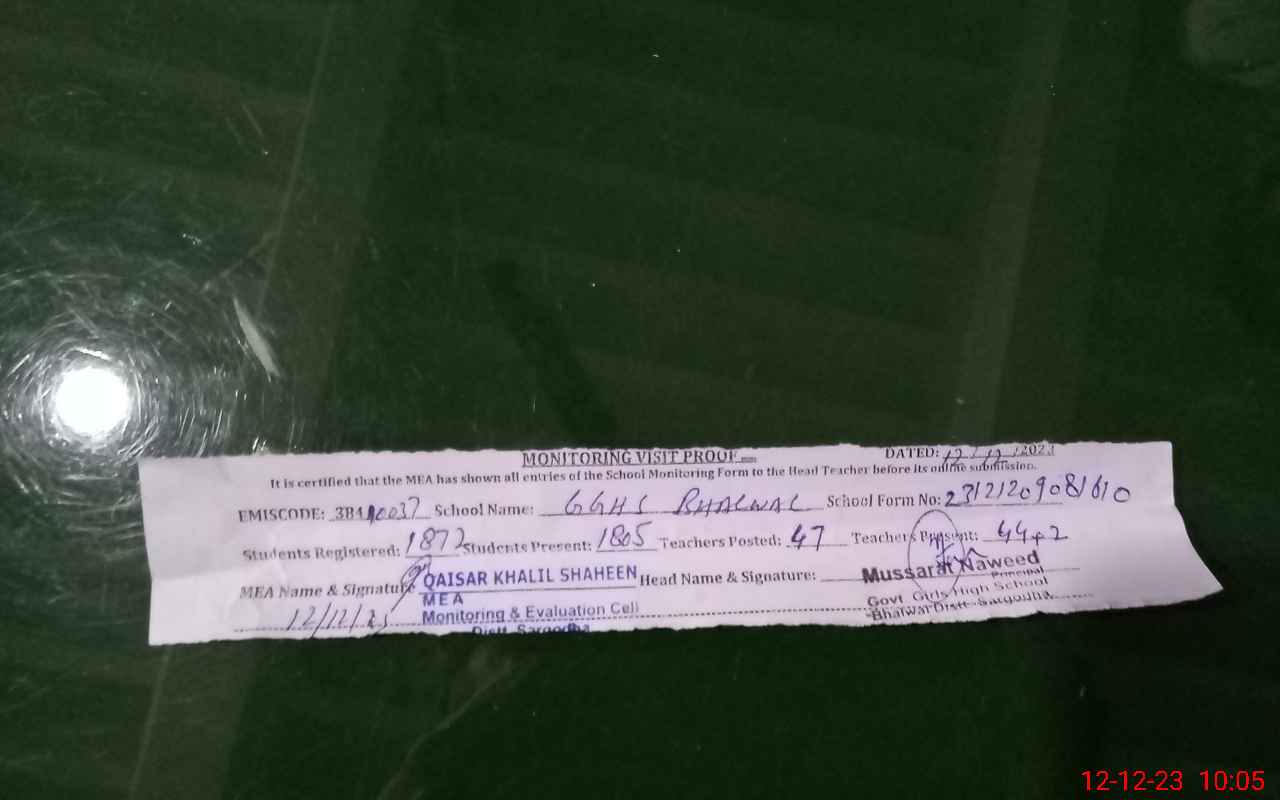 MONITORING VISIT PROOF
DATED: 12/12/2023
It is certified that the MEA has shown all entries of the School Monitoring Form to the Head Teacher before its online submission.
EMISCODE: 38410037 School Name: GGHS BHALWAL School Form No: 23121209081610
Students Registered: 1872 Students Present: 1805 Teachers Posted: 47 Teachers Present: 44+2
MEA Name & Signature QAISAR KHALIL SHAHEEN Head Name & Signature: Mussarat Naweed
MEA Principal
12/12/23 Monitoring & Evaluation Cell Govt Girls High School
Distt Sargodha Bhalwal Distt Sargodha
12-12-23 10:05